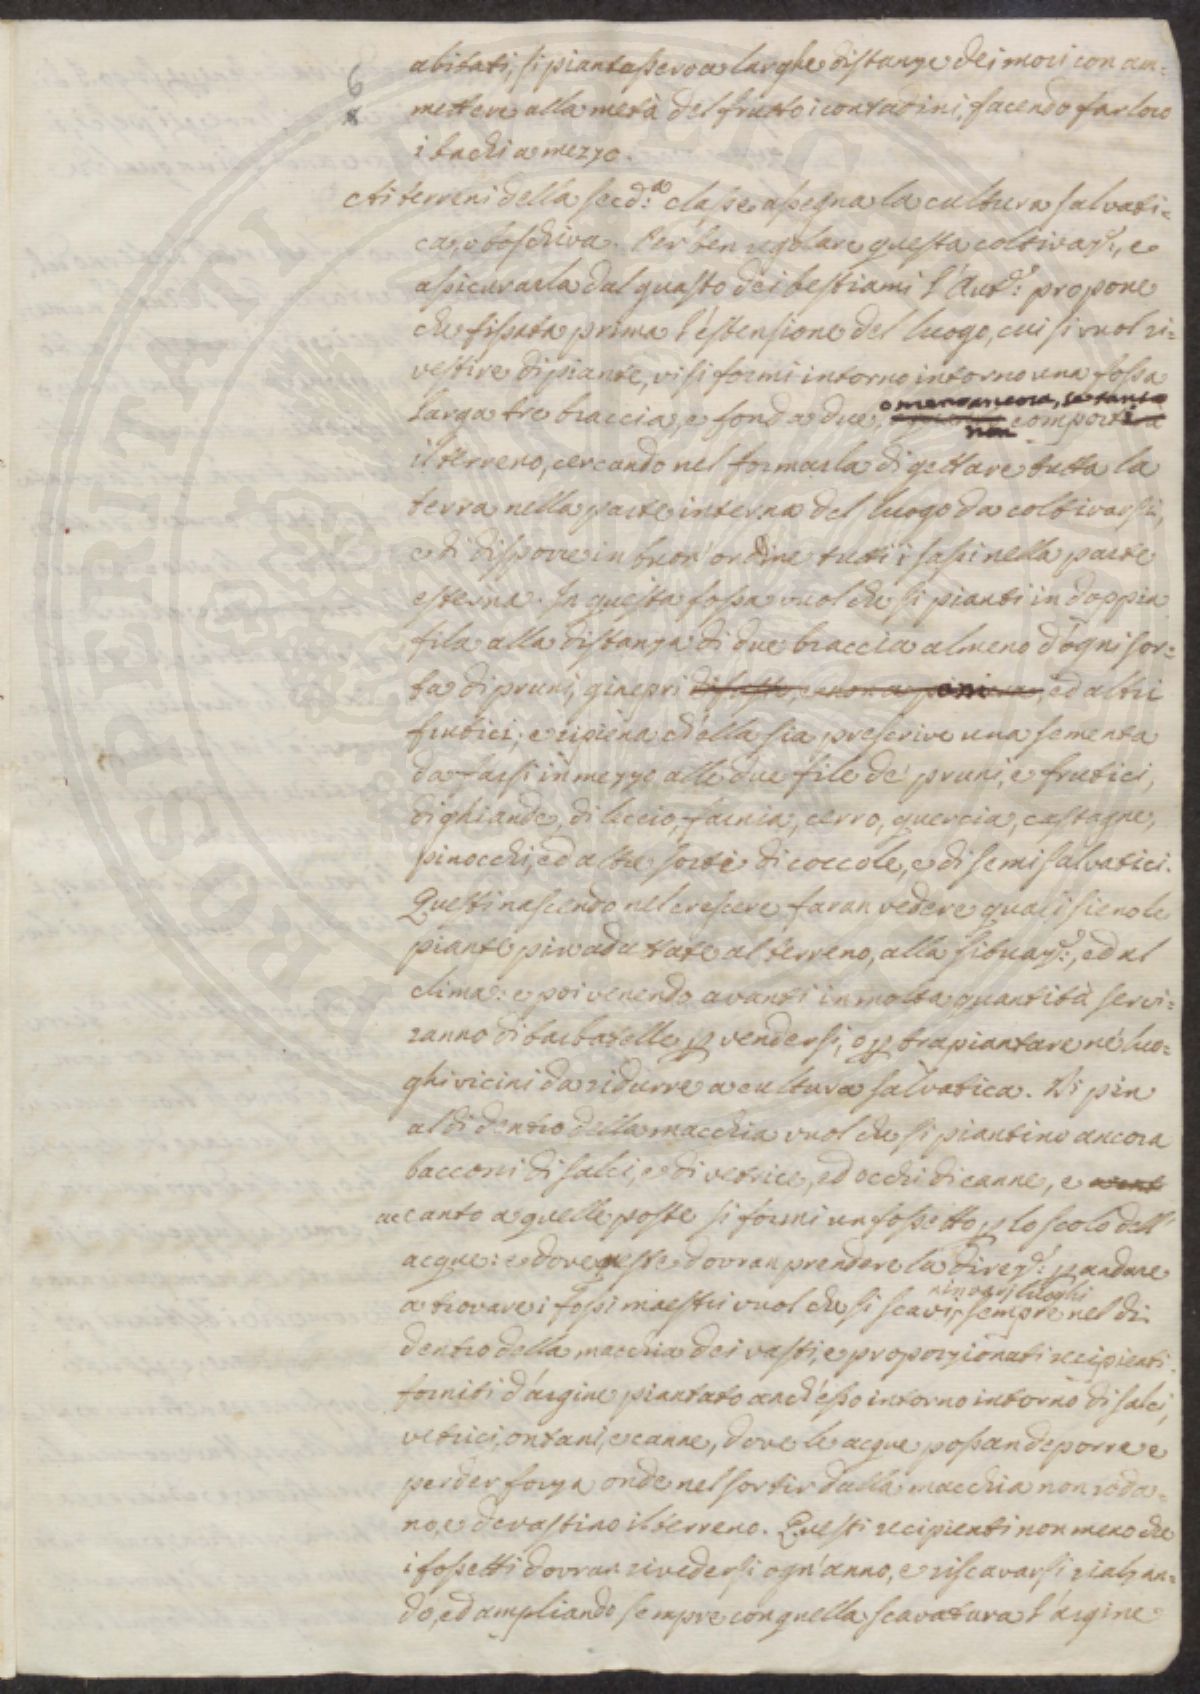 6
abitati, si piantassero a larghe distanze dei mori con am=
mettere alla metà del frutto i contadini, facendo far loro
i bachi a mezzo.
Ai terreni della secd.a classe assegna la cultura salvati=
ca, e boschiva. Per ben regolare questa coltivaz.e, e
assicurarla dal guasto dei bestiami l'Aut.e propone
che fissata prima l'estensione del luogo, cui si vuol ri=
vestire di piante, vi si formi intorno intorno una fossa
o meno ancora, se tanto
larga tre braccia, e fonda due, comporti
non
il terreno, cercando nel formarla di gettare tutta la
terra nella parte interna del luogo da coltivarsi,
e di disporre in buon ordine tutti i sassi nella parte
esterna. In questa fossa vuol che si pianti in doppia
fila alla distanza di due braccia almeno d'ogni sor=
ta di pruni, ginepri ed altri
frutici; e ripiena ch'ella sia prescrive una sementa
da farsi in mezzo alle due file de' pruni, e frutici,
di ghiande, di leccio, farnia, cerro, quercia, castagne,
pinocchi, ed altre sorte di coccole, e di semi salvatici.
Questi nascendo nel crescere faran vedere quali sieno le
piante più adattate al terreno, alla situaz.e, ed al
clima: e poi venendo avanti in molta quantità servi=
ranno di barbatelle p vendersi, o p trapiantare né luo=
ghi vicini da ridurre a cultura salvatica. Di più
al di dentro della macchia vuol che si piantino ancora
bacconi di salci, e di vetrice, ed occhi di canne, e
accanto a quelle poste si formi un fossetto p lo scolo dell'
acque: e dove queste dovran prendere la direz.e p andare
in varj luoghi
a trovare i fossi maestri vuol che si scavi, sempre nel di
dentro della macchia dei vasti, e proporzionati recipienti
forniti d'argine piantato anch'esso intorno intorno di salci,
vetrici, ontani, e canne, dove le acque possan deporre e
perder forza onde nel sortir dalla macchia non roda=
no, e devastino il terreno. Questi recipienti non meno che
i fossetti dovran rivedersi ogn'anno, e riscavarsi rialzan=
do, ed ampliando sempre con quella scavatura l'argine
PROSPERITATI PUBLICAE